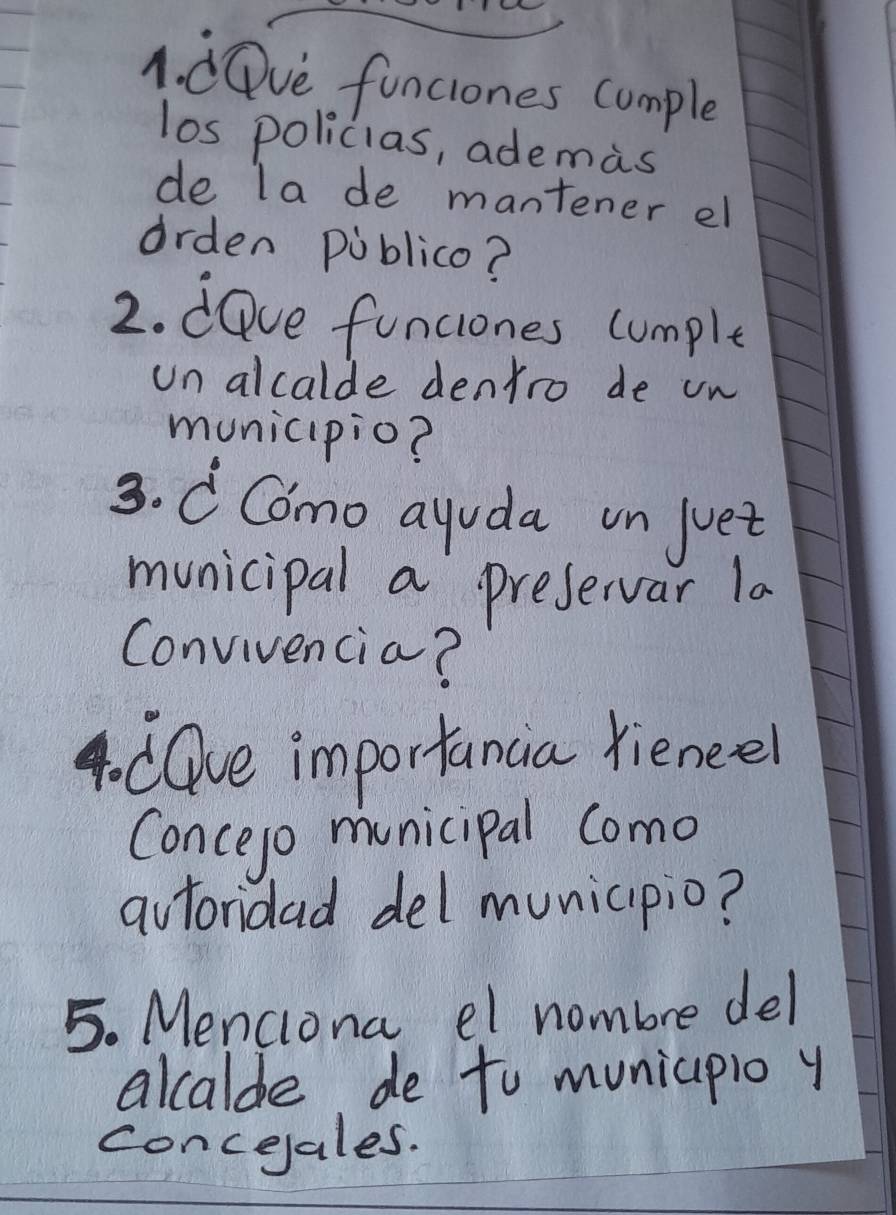 1. ¿Qué funciones cumple
los policias, además
de la de mantener el
orden público?
2. ¿Que funciones cumple
un alcalde dentro de un
municipio?
3. ¿Cómo ayuda un juez
municipal a preservar la
Convivencia?
4. ¿Que importancia tiene el
Concejo municipal como
autoridad del municipio?
5. Menciona el nombre del
alcalde de tu municipio y
concejales.